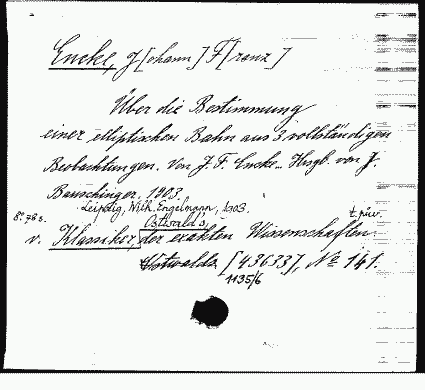 Encke, J[ohann] F[ranz]
Über die Bestimmung
einer elliptischen Bahn aus 3 vollständigen
Beobachtungen. Von J. F. Encke... Hrsgb. von J.
Bauschinger. 1903.
Leipzig, Wilh. Engelmann, 1903.
8° 78 s. Ostwald's,
v. Klassiker der exakten Wissenschaften
Ostwalds [43633], № 141.
1135/6